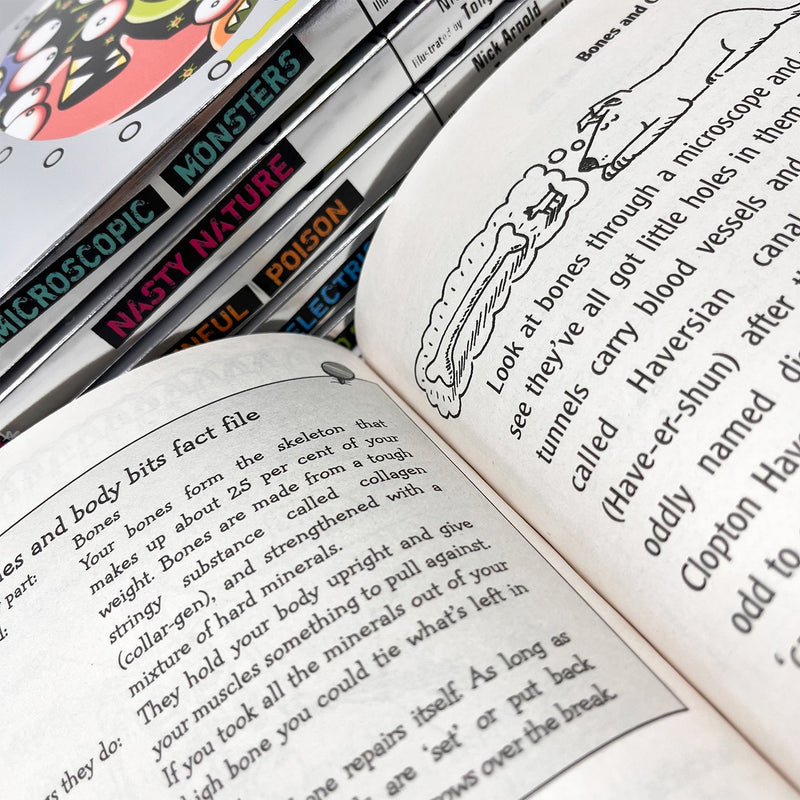 MICROSCOPIC MONSTERS
NASTY NATURE
POISON
Illustrated by Tony
Nick Arnold
Bones and body bits fact file
Bones
Your bones form the skeleton that
makes up about 25 per cent of your
weight. Bones are made from a tough
stringy substance called collagen
(collar-gen), and strengthened with a
mixture of hard minerals.
They hold your body upright and give
your muscles something to pull against.
If you took all the minerals out of your
bone you could tie what's left in
bone repairs itself. As long as
are 'set' or put back
over the break.
part:
they do:
Bones and
Look at bones through a microscope and
see they've all got little holes in them
tunnels carry blood vessels and
called Haversian canal
(Have-er-shun) after
oddly named
Clopton
odd to